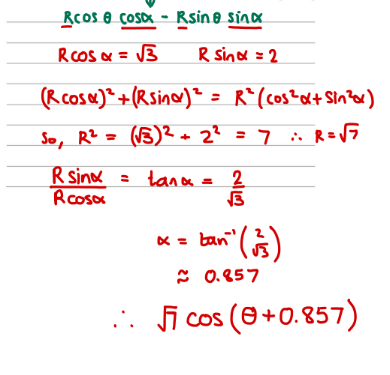 Rcos θ cosα - Rsinθ sinα
R cos α = √3 R sin α = 2
(R cosα)² + (R sinα)² = R² (cos²α + sin²α)
So, R² = (√3)² + 2² = 7 ∴ R = √7
R sinα / R cosα = tan α = 2/√3
α = tan⁻¹ (2/√3)
≈ 0.857
∴ √7 cos (θ + 0.857)